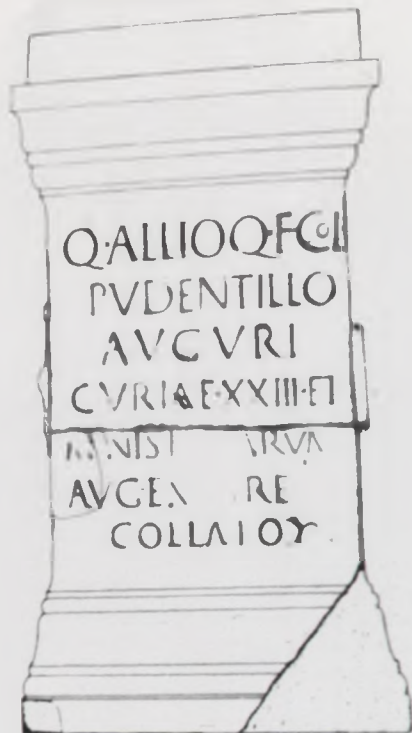 Q·ALLIO Q·F COL
PVDENTILLO
AVGVRI
CVRIAE·XXIII·ET
NIST ARVM
AVGEN RE